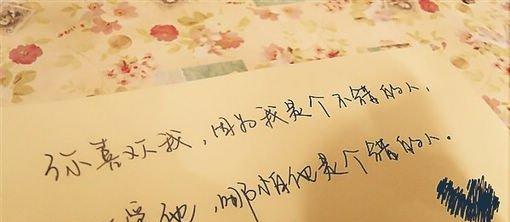 你喜欢我，因为我是个不错的人．
爱他，哪怕他是个错的人．